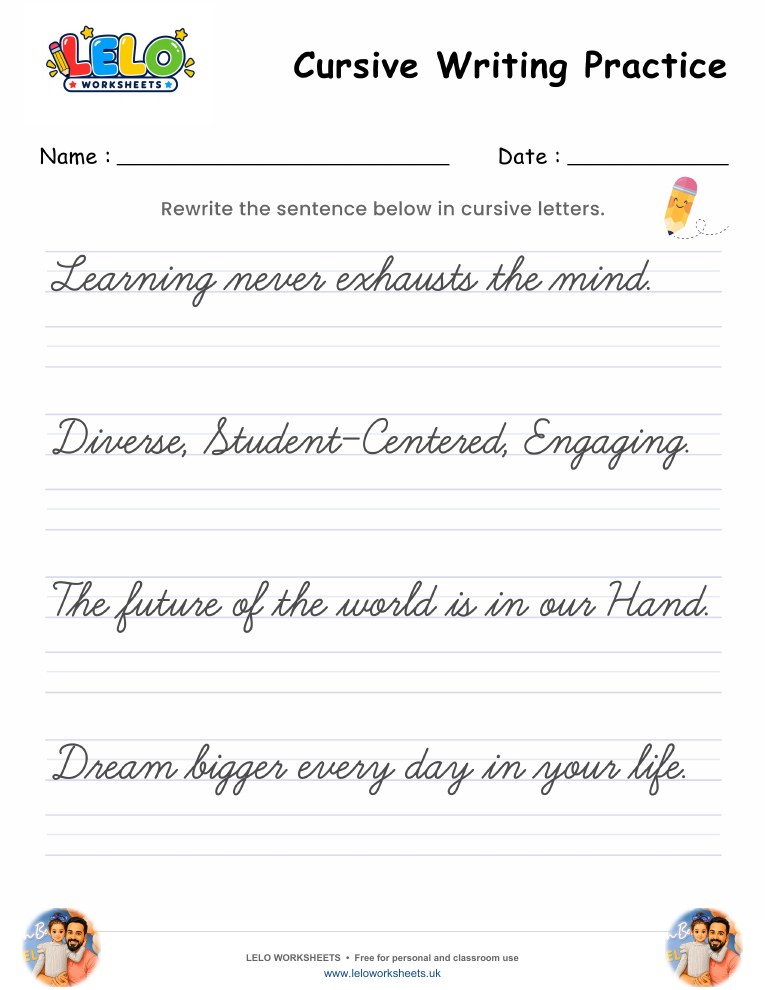 LELO
WORKSHEETS
Cursive Writing Practice
Name : Date :
Rewrite the sentence below in cursive letters.
Learning never exhausts the mind.
Diverse, Student-Centered, Engaging.
The future of the world is in our Hand.
Dream bigger every day in your life.
LELO WORKSHEETS • Free for personal and classroom use
www.leloworksheets.uk